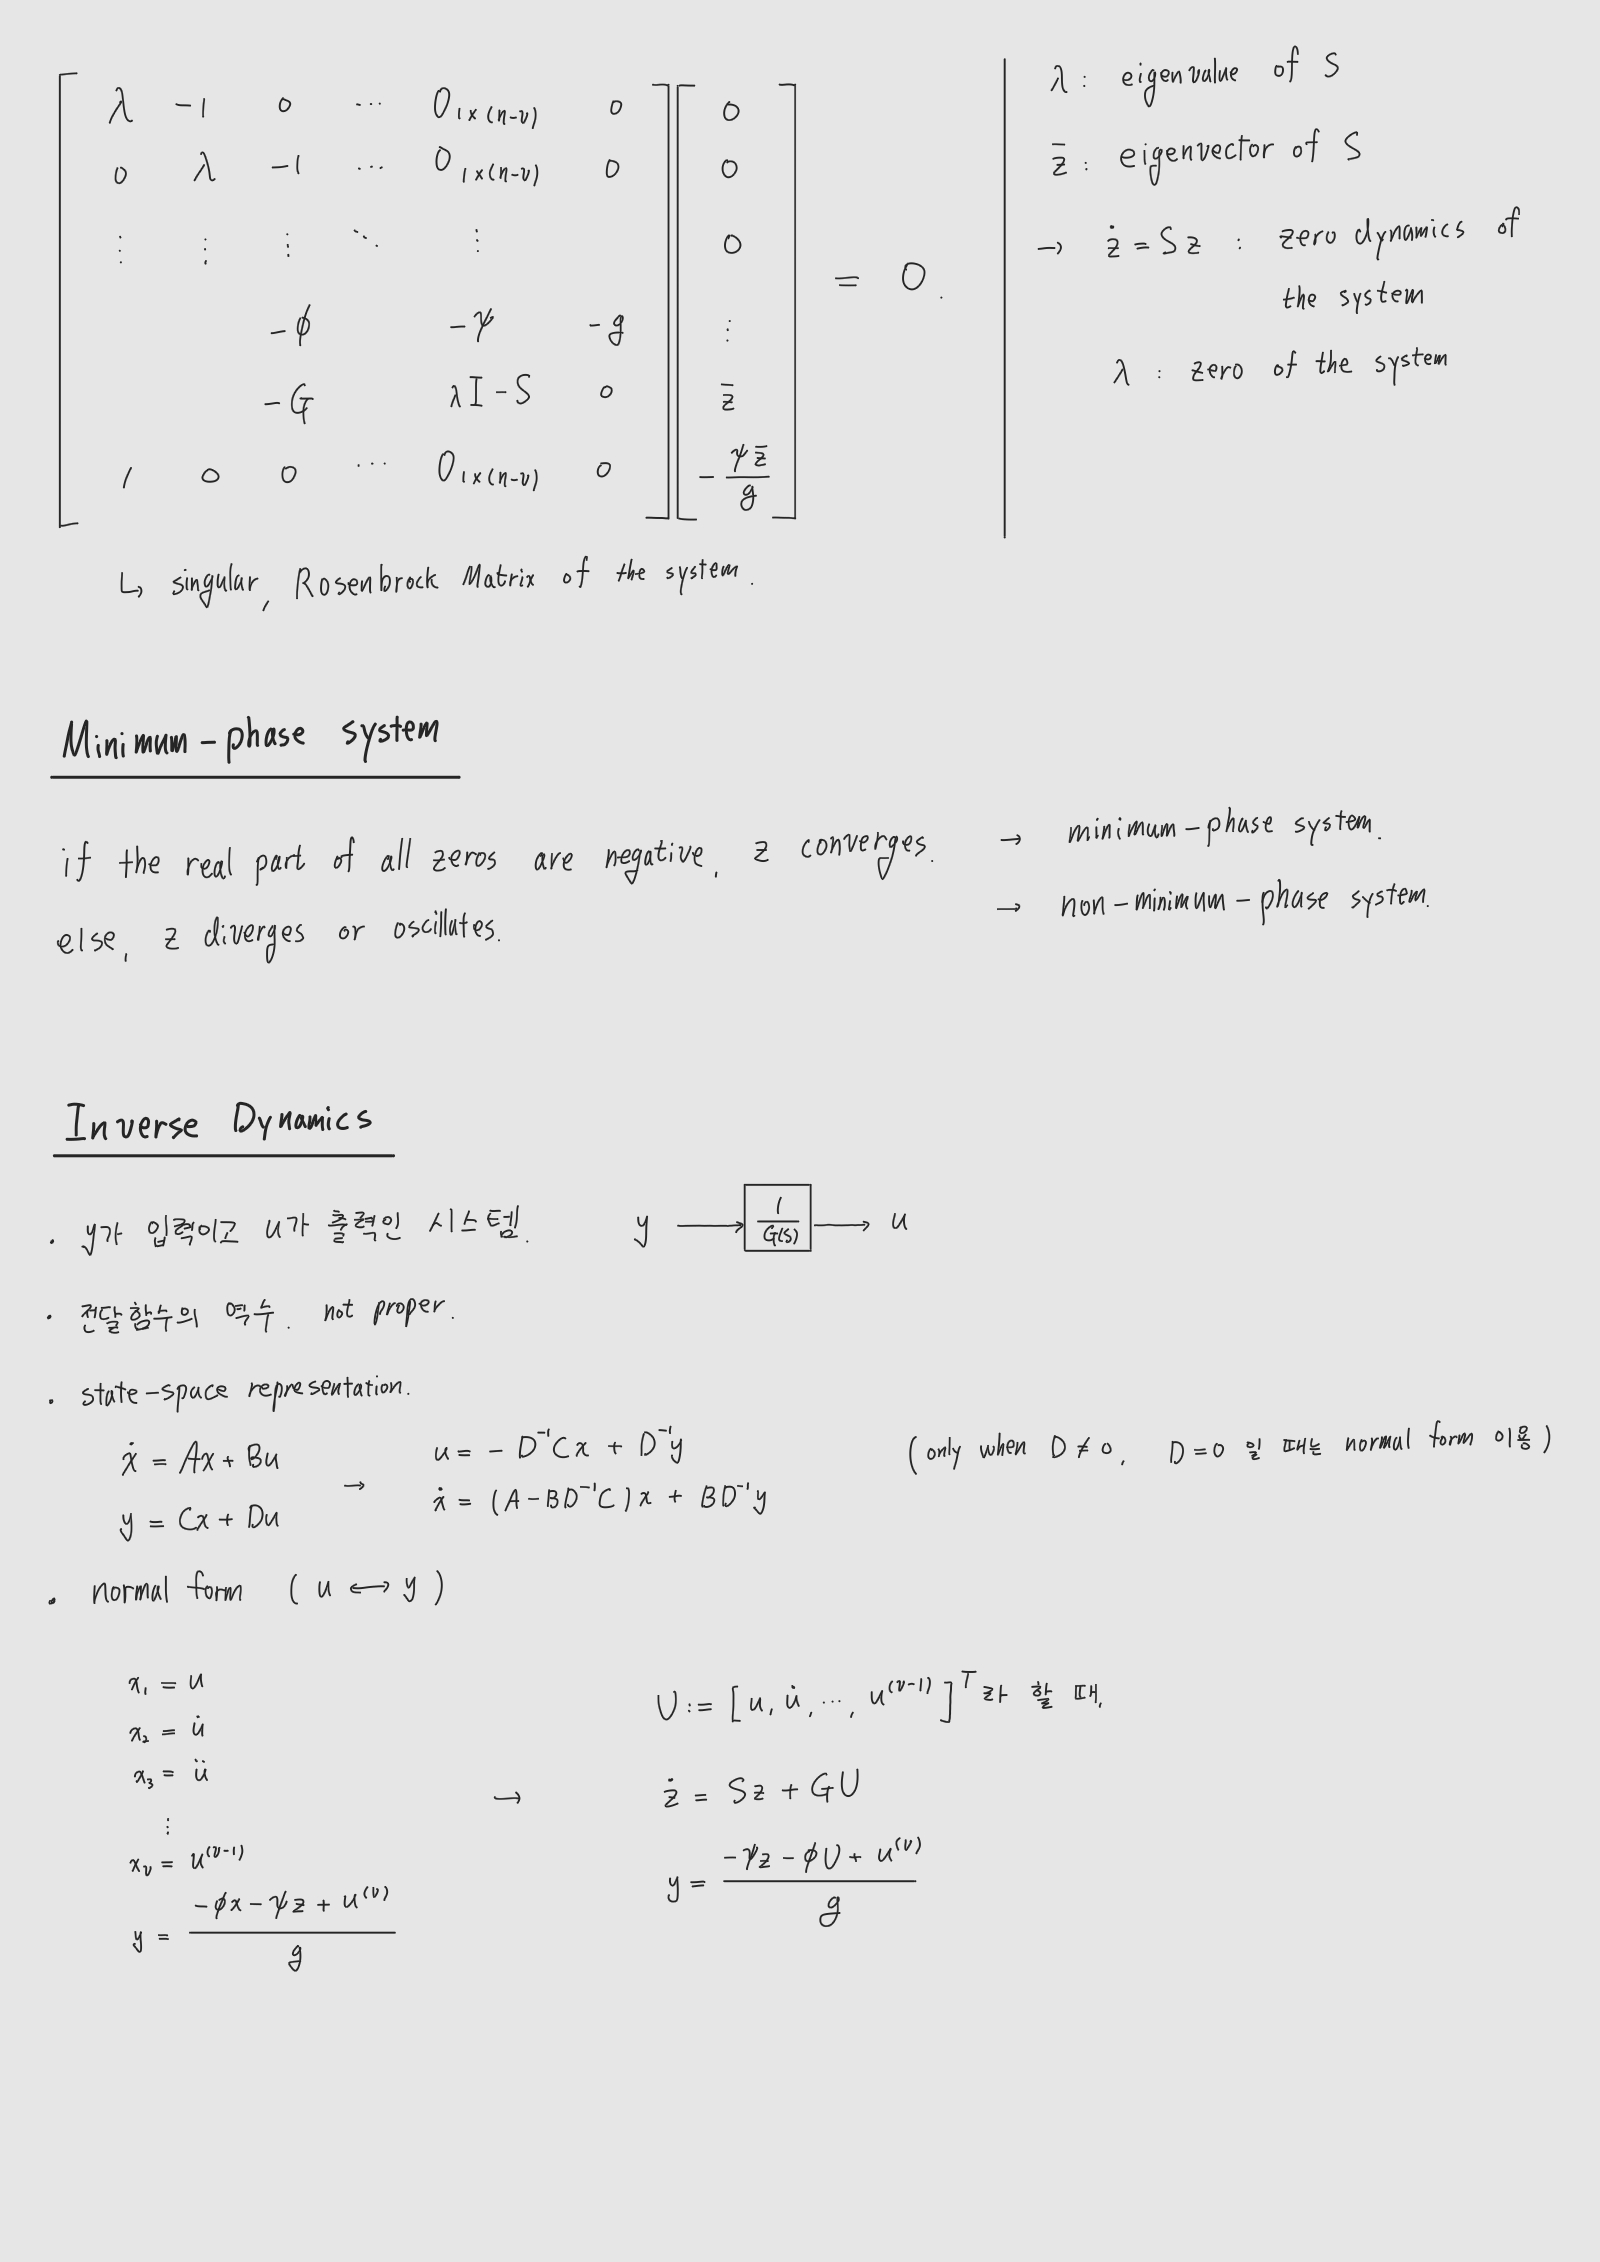 [ λ -1 0 ⋯ 0₁ₓ₍ₙ₋ᵥ₎ 0 ] [ 0 ]
[ 0 λ -1 ⋯ 0₁ₓ₍ₙ₋ᵥ₎ 0 ] [ 0 ]
[ ⋮ ⋮ ⋮ ⋱ ⋮ ] [ 0 ] = 0.
[ -φ -ψ -g ] [ ⋮ ]
[ -G λI-S 0 ] [ z̄ ]
[ 1 0 0 ⋯ 0₁ₓ₍ₙ₋ᵥ₎ 0 ] [ -ψz̄/g ]
↳ singular, Rosenbrock Matrix of the system.
λ : eigenvalue of S
z̄ : eigenvector of S
→ ż = Sz : zero dynamics of
the system
λ : zero of the system
Minimum-phase system
if the real part of all zeros are negative, z converges. → minimum-phase system.
else, z diverges or oscillates. → non-minimum-phase system.
Inverse Dynamics
· y가 입력이고 u가 출력인 시스템. y → 1/G(s) → u
· 전달함수의 역수. not proper.
· state-space representation.
ẋ = Ax + Bu → u = - D⁻¹Cx + D⁻¹y (only when D ≠ 0, D=0 일 때는 normal form 이용)
y = Cx + Du ẋ = (A-BD⁻¹C)x + BD⁻¹y
· normal form ( u ↔ y )
x₁ = u
x₂ = u̇
x₃ = ü
⋮
xᵥ = u^(ν-1)
y = (-φx - ψz + u^(ν))/g
→
U := [u, u̇, ⋯, u^(ν-1)]ᵀ 라 할 때,
ż = Sz + GU
y = (-ψz - φU + u^(ν))/g